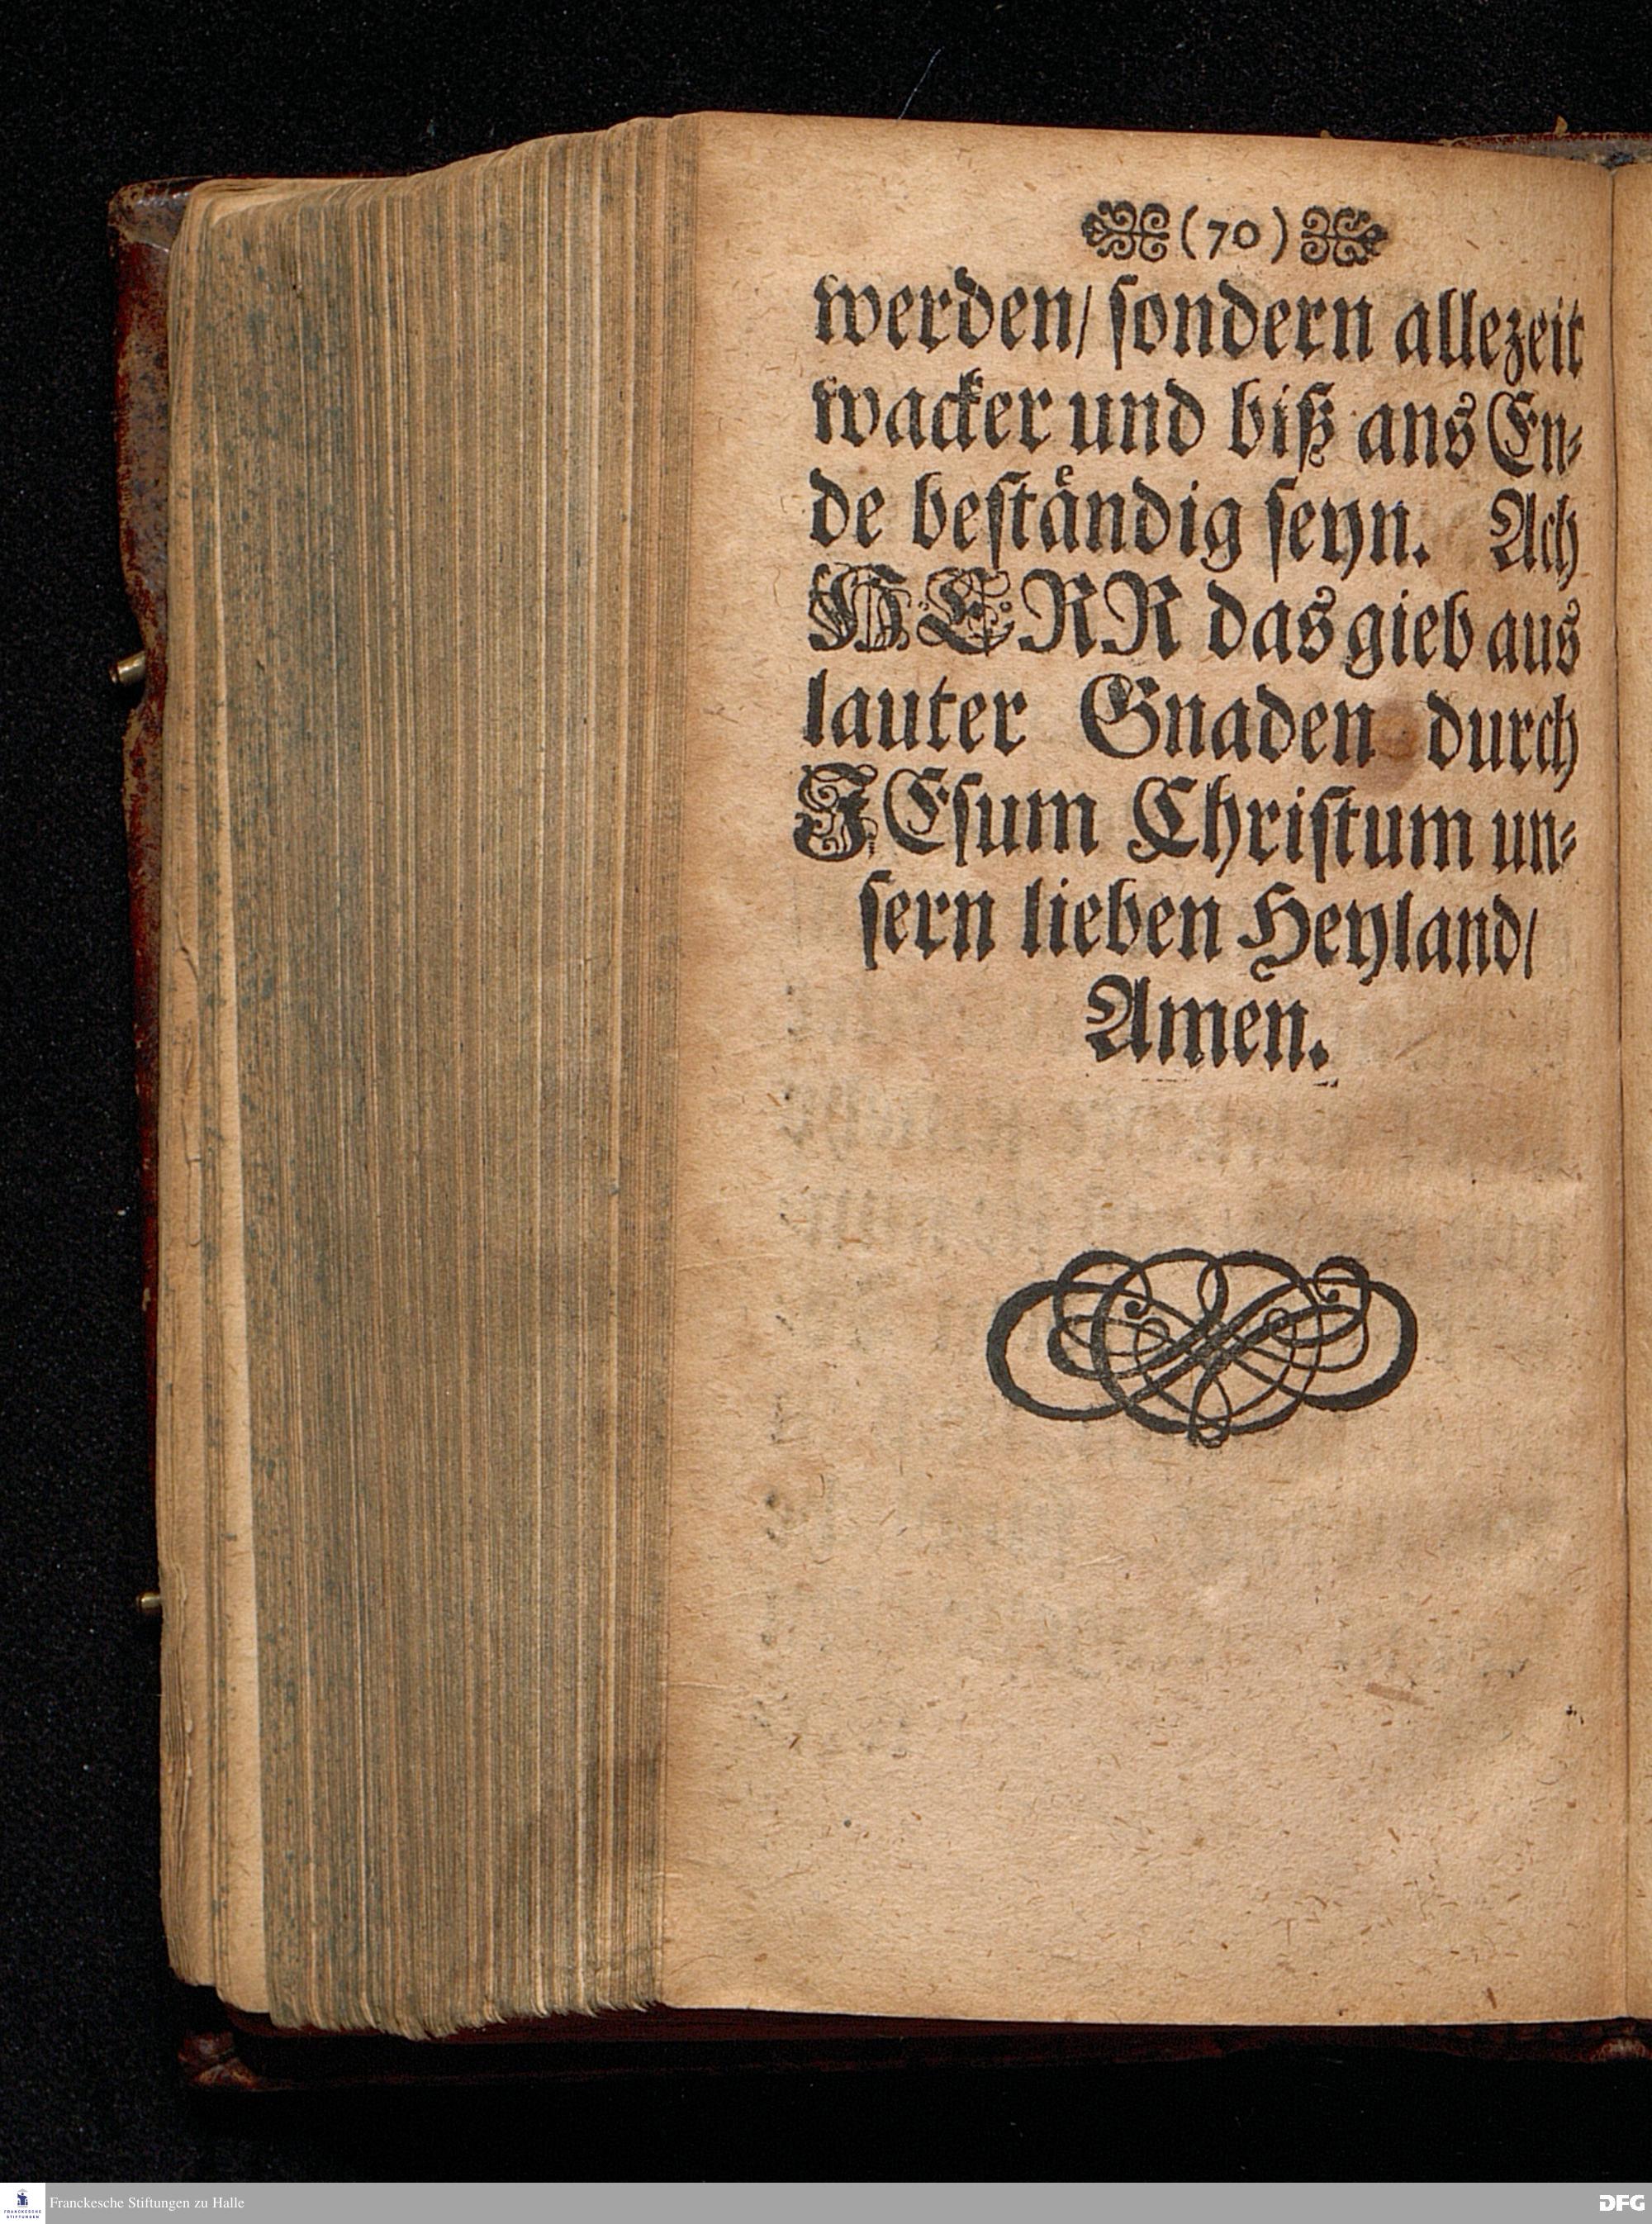 (70)
werden/ sondern allezeit
wacker und biß ans En-
de beständig seyn. Ach
HERR das gieb aus
lauter Gnaden durch
JEsum Christum un-
sern lieben Heyland/
Amen.
Franckesche Stiftungen zu Halle
DFG